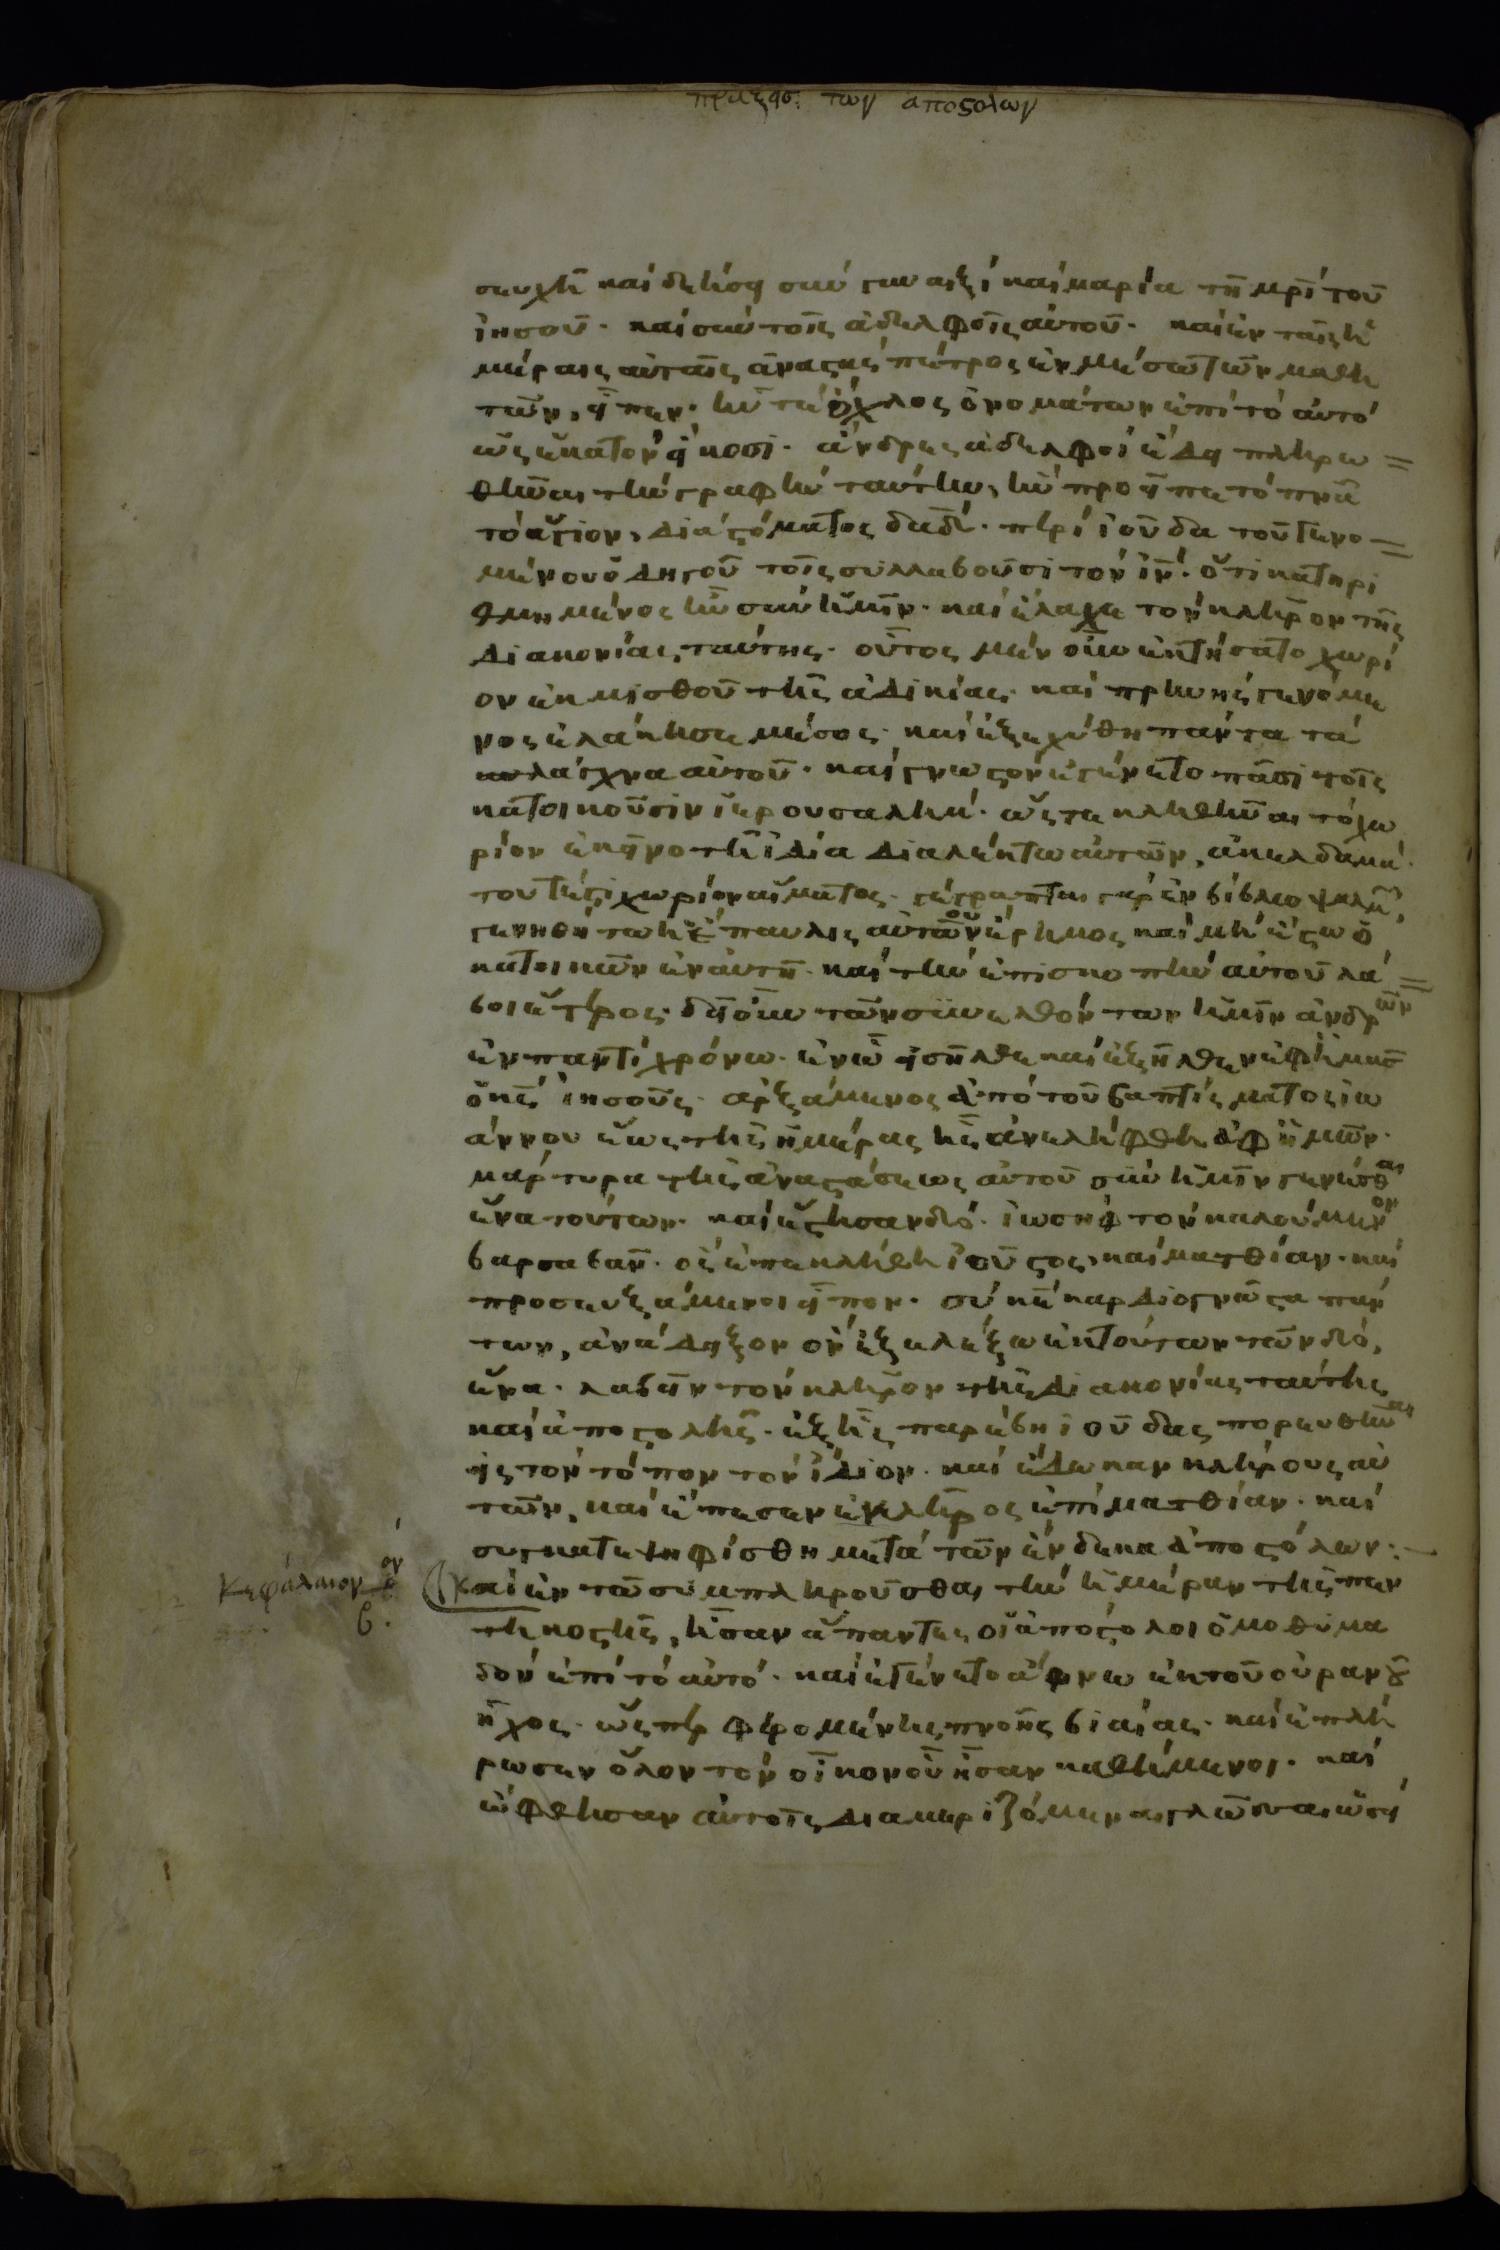 πράξεις των αποστολων
σευχῆ καὶ δεήσει σὺν γυναιξὶ καὶ μαρία τῆ μρὶ τοῦ
ἰησοῦ· καὶ σὺν τοῖς ἀδελφοῖς αὐτοῦ· καὶ ἐν ταῖς ἡ
μέραις αὐταῖς ἀναστὰς πέτρος ἐν μέσω τῶν μαθη
τῶν, εἶπεν· ἦν τὲ ὄχλος ὀνομάτων ἐπὶ τὸ αὐτὸ
ὡς ἑκατὸν εἴκοσι· ἄνδρες ἀδελφοὶ ἔδει πληρω
θῆναι τὴν γραφὴν ταύτην, ἣν προεῖπε τὸ πνᾶ
τὸ ἅγιον, διὰ στόματος δαδ· περὶ ἰούδα τοῦ γενο
μένου ὁδηγοῦ τοῖς συλλαβοῦσι τὸν ἰν· ὅτι κατηρι
θμημένος ἦν σὺν ἡμῖν· καὶ ἔλαχε τὸν κλῆρον τῆς
διακονίας ταύτης· οὗτος μὲν οὖν ἐκτήσατο χωρί
ον ἐκ μισθοῦ τῆς ἀδικίας· καὶ πρηνὴς γενόμε
νος ἐλάκησε μέσος· καὶ ἐξεχύθη πάντα τὰ
σπλάγχνα αὐτοῦ· καὶ γνωστὸν ἐγένετο πᾶσι τοῖς
κατοικοῦσιν ἱερουσαλήμ· ὥστε κληθῆναι τὸ χω
ρίον ἐκεῖνο τῆ ἰδία διαλέκτω αὐτῶν, ἀκελδαμά·
τουτέστι χωρίον αἵματος· γέγραπται γὰρ ἐν βίβλω ψαλμ,
γενηθήτω ἡ ἔπαυλις αὐτοῦ ἔρημος καὶ μὴ ἔστω ὁ
κατοικῶν ἐν αὐτῆ· καὶ τὴν ἐπισκοπὴν αὐτοῦ λά
βοι ἕτερος· δεῖ οὖν τῶν συνελθόντων ἡμῖν ἀνδρῶν
ἐν παντὶ χρόνω· ἐν ὧ εἰσῆλθε καὶ ἐξῆλθεν ἐφ ἡμᾶς
ὁ κς ἰησοῦς· ἀρξάμενος ἀπὸ τοῦ βαπτίσματος ἰω
άννου ἕως τῆς ἡμέρας ἧς ἀνελήφθη ἀφ ἡμῶν·
μάρτυρα τῆς ἀναστάσεως αὐτοῦ σὺν ἡμῖν γενέσθαι
ἕνα τούτων· καὶ ἔστησαν δύο· ἰωσὴφ τὸν καλούμενον
βαρσαβᾶν· ὃς ἐπεκλήθη ἰοῦστος, καὶ ματθίαν· καὶ
προσευξάμενοι εἶπον· σὺ κε καρδιογνῶστα πάν
των, ἀνάδειξον ὃν ἐξελέξω ἐκ τούτων τῶν δύο,
ἕνα· λαβεῖν τὸν κλῆρον τῆς διακονίας ταύτης
καὶ ἀποστολῆς· ἐξ ἧς παρέβη ἰούδας πορευθῆναι
εἰς τὸν τόπον τὸν ἴδιον· καὶ ἔδωκαν κλήρους αὐ
τῶν, καὶ ἔπεσεν ὁ κλῆρος ἐπὶ ματθίαν· καὶ
συγκατεψηφίσθη μετὰ τῶν ἕνδεκα ἀποστόλων:
Κεφάλαιον β·
Καὶ ἐν τῶ συμπληροῦσθαι τὴν ἡμέραν τῆς πεν
τηκοστῆς, ἦσαν ἅπαντες οἱ ἀπόστολοι ὁμοθυμα
δὸν ἐπὶ τὸ αὐτό· καὶ ἐγένετο ἄφνω ἐκ τοῦ οὐρανοῦ
ἦχος· ὥσπερ φερομένης πνοῆς βιαίας· καὶ ἐπλή
ρωσεν ὅλον τὸν οἶκον οὗ ἦσαν καθήμενοι· καὶ
ὤφθησαν αὐτοῖς διαμεριζόμεναι γλῶσσαι ὡσεὶ